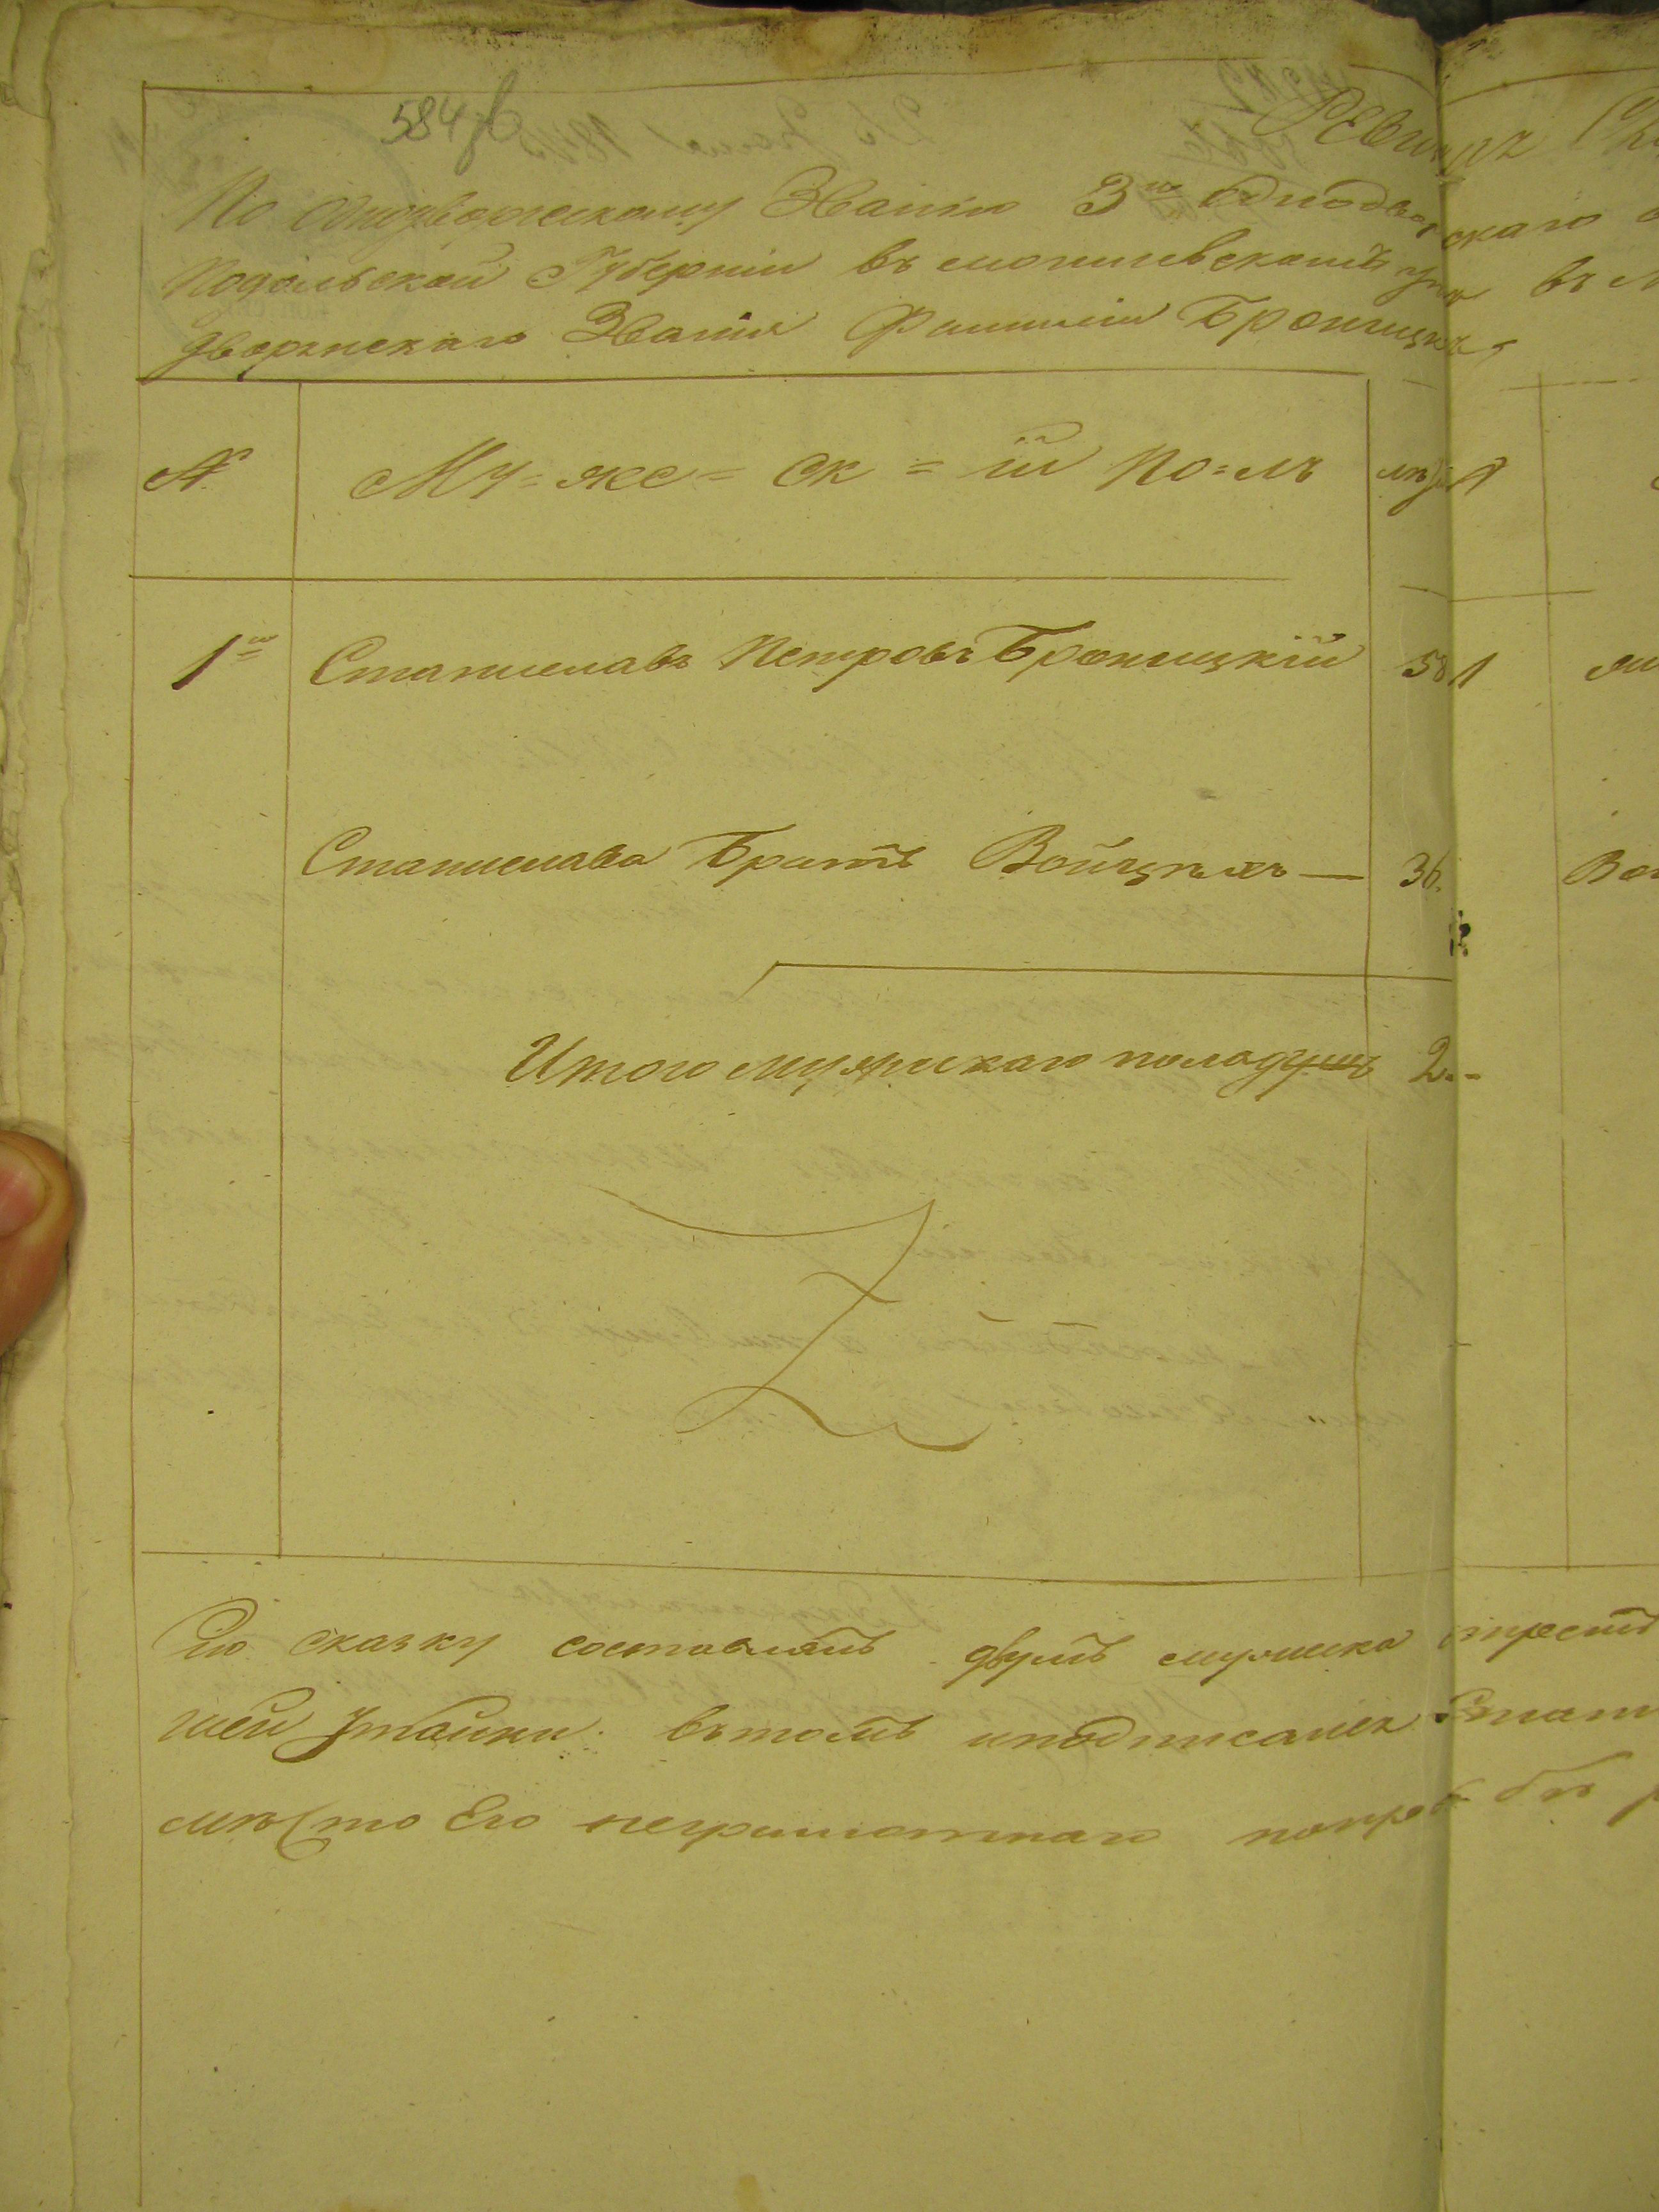 584
Ревиз
По однодворческому Званію 3го однодвор скаго
Подольской Губерніи въ могилевскомъ въ
дворянскаго Званія Фамиліи Броницкихъ
№ Му=жс=ск=ій По=лъ лѣта
1й Станиславъ Петровъ Броницкій 58
Станислава Братъ Войцѣхъ — 36. Вой
Итого мужескаго пола душъ 2.-
Сію сказку составлялъ двумъ
шей утайки. въ томъ иподписался Стани
мѣсто Его неграмотнаго